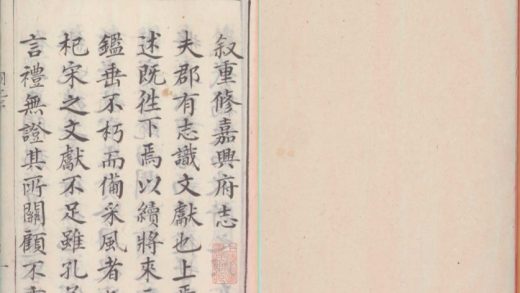 叙重修嘉興府志
夫郡有志識文獻也上焉
述既徃下焉以續將來
鑑垂不朽而備采風者
杞宋之文獻不足雖孔
言禮無證其所關顧不